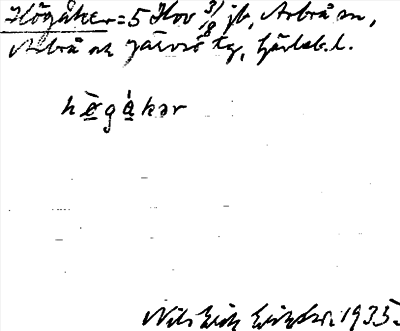 Högåker = 5 Hov 3/8 jb, Arbrå sn,
Arbrå och Järvsö tg, Gävleb. l.
högåkər
Nils Erik Eriksson 1935.